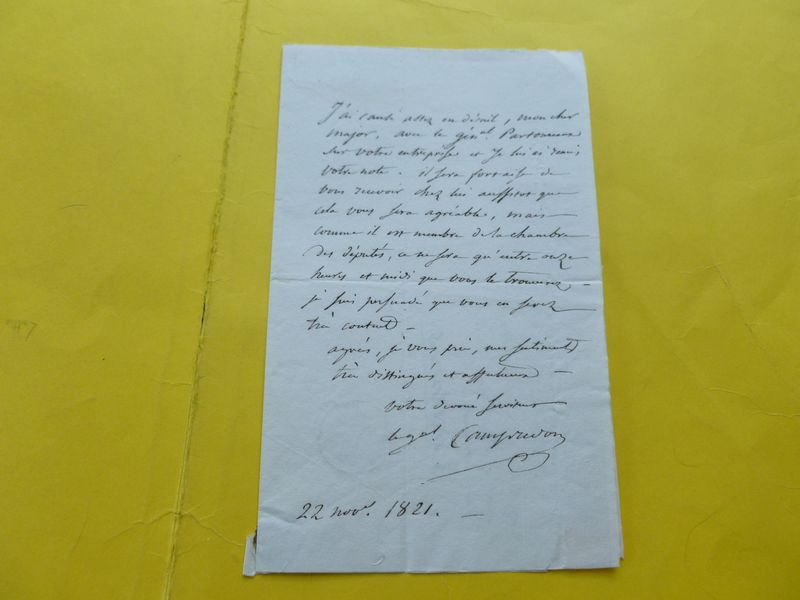 J'ai causé assez en détail, mon cher
major, avec le gén.al Partouneaux
sur votre entreprise et je lui ai remis
votre note. il sera fort aise de
vous recevoir chez lui aussitot que
cela vous sera agréable, mais
comme il est membre de la chambre
des députés, ce ne sera qu'entre onze
heures et midi que vous le trouverez —
je suis persuadé que vous en serez
très content —
agréez, je vous prie, mes sentiments
très distingués et affectueux —
votre devoué serviteur
le g.al Campredon
22 nov.e 1821. —